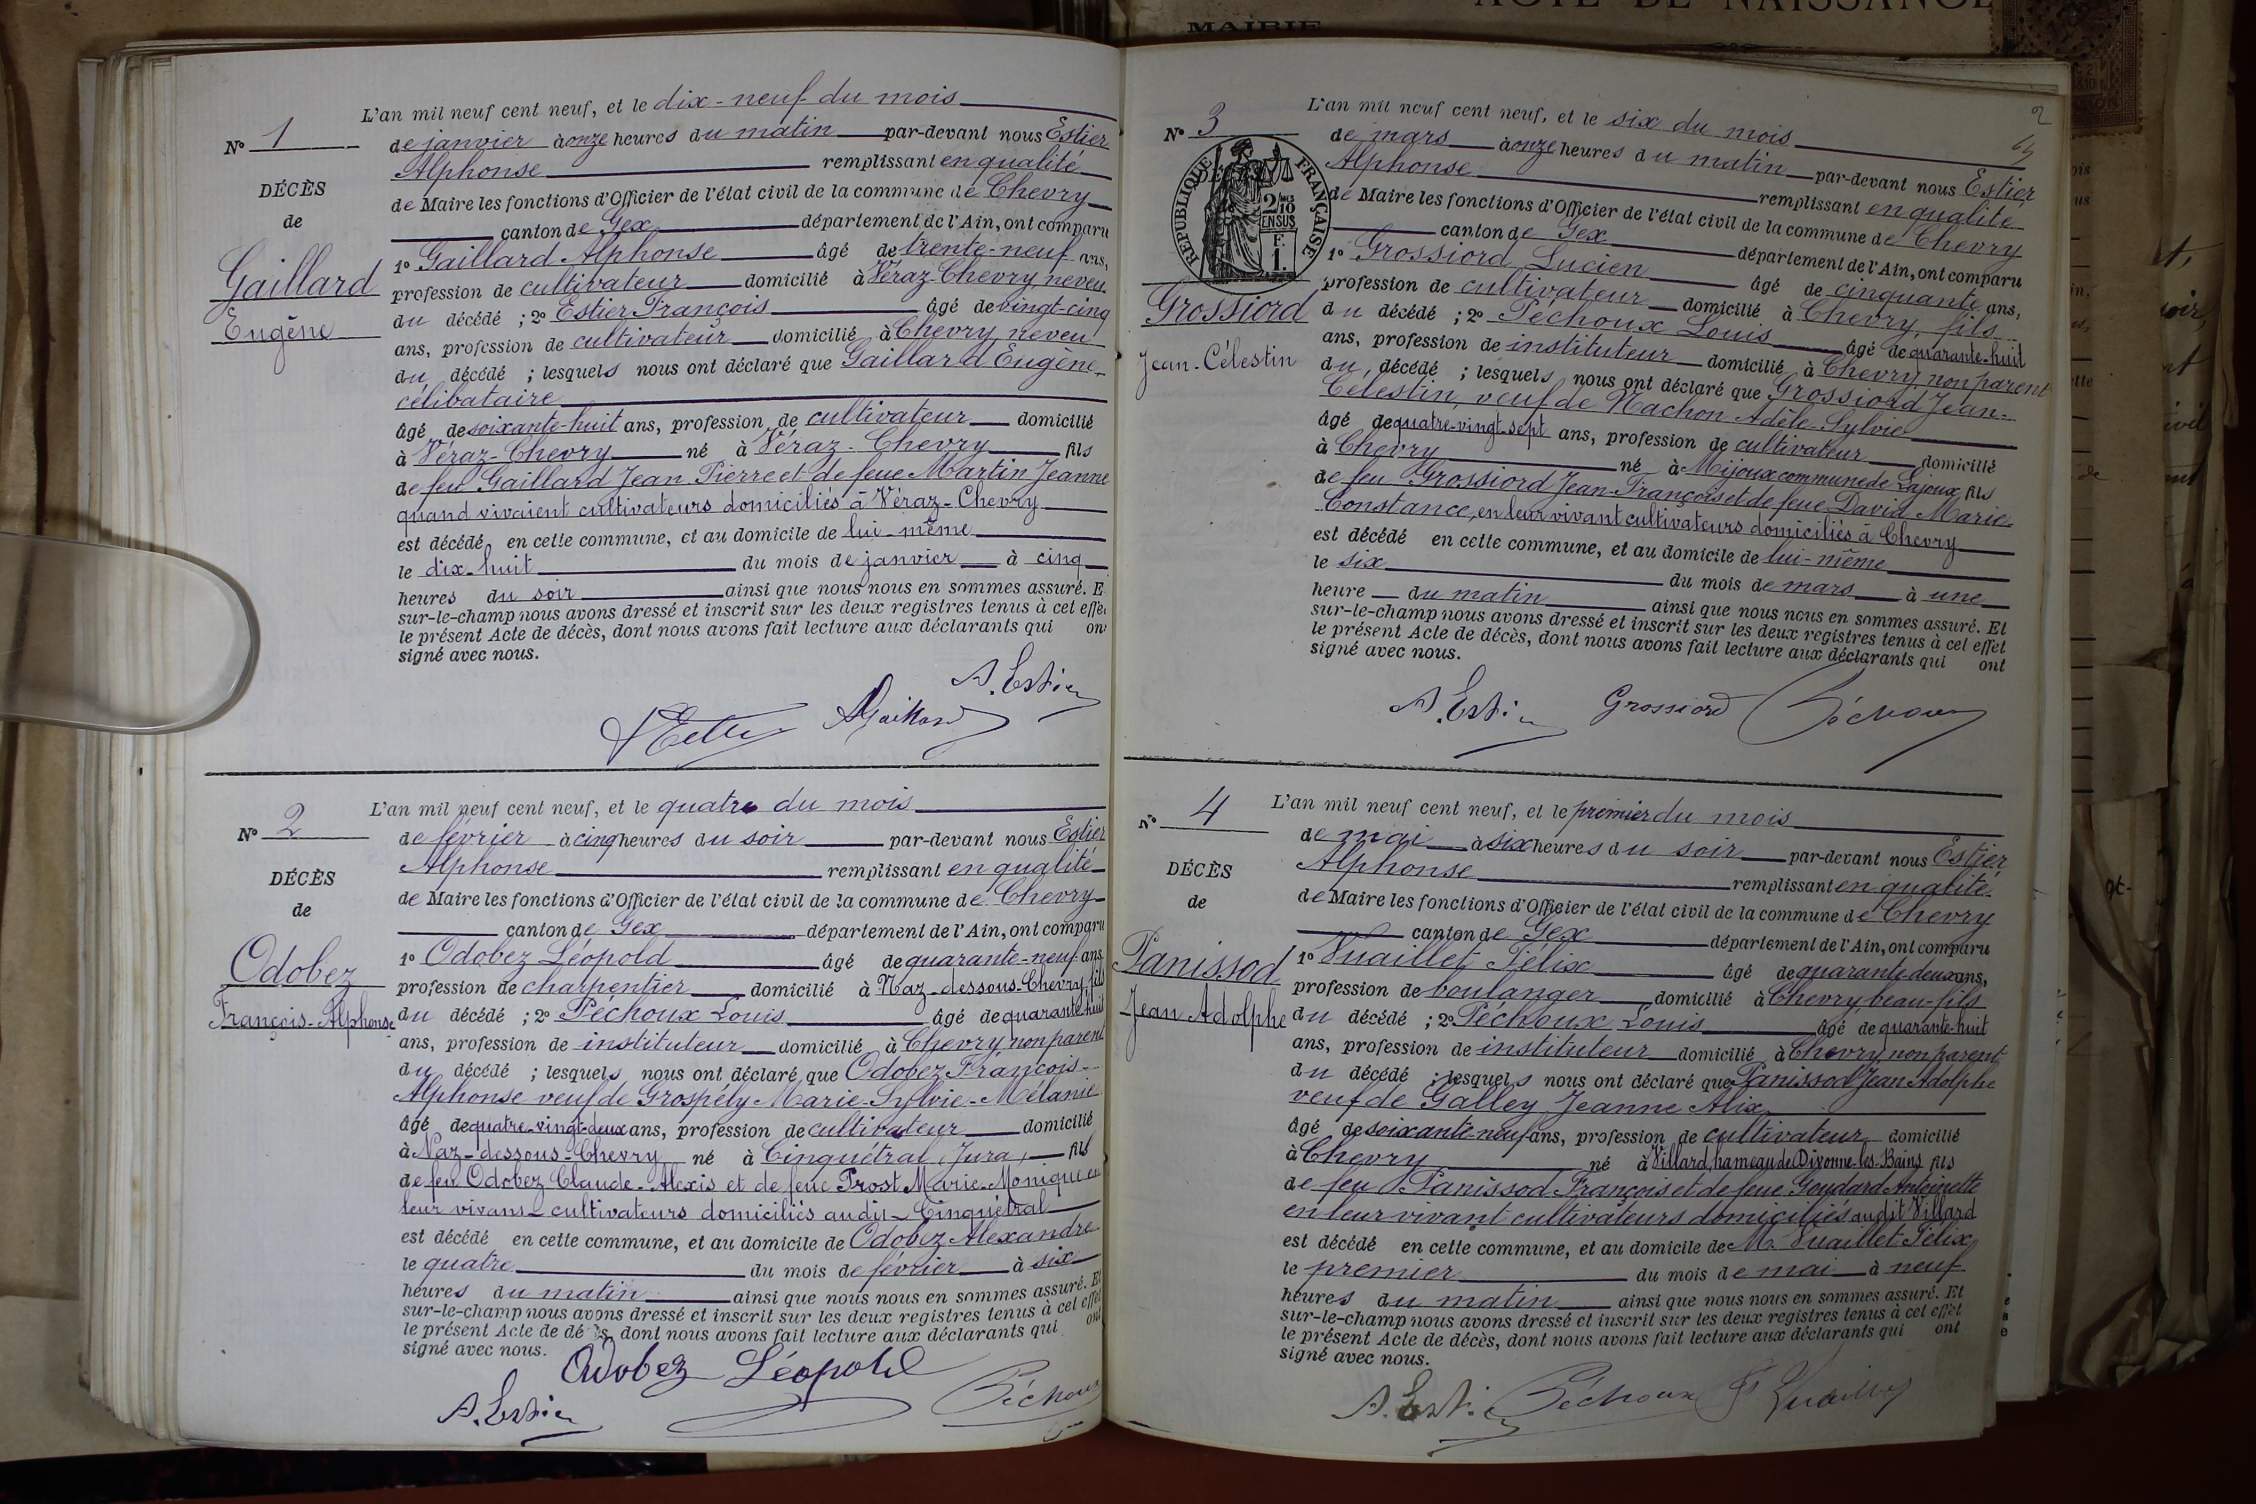 ACTE DE NAISSANCE
MAIRIE
L'an mil neuf cent neuf, et le dix-neuf du mois
N° 1
de janvier à onze heures du matin par-devant nous Estier
Alphonse remplissant en qualité
DÉCÈS
de Maire les fonctions d'Officier de l'état civil de la commune de Chevry
de
canton de Gex département de l'Ain, ont comparu
Gaillard
Eugène
1° Gaillard Alphonse âgé de trente-neuf ans,
profession de cultivateur domicilié à Véraz-Chevry neveu
du décédé ; 2° Estier François âgé de vingt-cinq
ans, profession de cultivateur domicilié à Chevry neveu
du décédé ; lesquels nous ont déclaré que Gaillard Eugène
célibataire
âgé de soixante-huit ans, profession de cultivateur domicilié
à Véraz-Chevry né à Véraz-Chevry fils
de feu Gaillard Jean Pierre et de feue Martin Jeanne
quand vivaient cultivateurs domiciliés à Véraz-Chevry
est décédé en cette commune, et au domicile de lui-même
le dix-huit du mois de janvier à cinq
heures du soir ainsi que nous nous en sommes assuré. E
sur-le-champ nous avons dressé et inscrit sur les deux registres tenus à cet effe
le présent Acte de décès, dont nous avons fait lecture aux déclarants qui on
signé avec nous.
A. Estier
AGaillard
L'an mil neuf cent neuf, et le quatre du mois
N° 2
de février à cinq heures du soir par-devant nous Estier
Alphonse remplissant en qualité
DÉCÈS
de Maire les fonctions d'Officier de l'état civil de la commune de Chevry
de
canton de Gex département de l'Ain, ont comparu
Odobez
François-Alphonse
1° Odobez Léopold âgé de quarante-neuf ans
profession de charpentier domicilié à Naz-dessous-Chevry, fils
du décédé ; 2° Péchoux Louis âgé de quarante-huit
ans, profession de instituteur domicilié à Chevry non parent
du décédé ; lesquels nous ont déclaré que Odobez François-
Alphonse veuf de Grospély Marie-Sylvie-Mélanie
âgé de quatre-vingt-deux ans, profession de cultivateur domicilié
à Naz-dessous-Chevry né à Cinquétral (Jura) fils
de feu Odobez Claude-Alexis et de feue Prost Marie-Monique en
leur vivant cultivateurs domiciliés audit Cinquétral
est décédé en cette commune, et au domicile de Odobez Alexandre
le quatre du mois de février à six
heures du matin ainsi que nous nous en sommes assuré. Et
sur-le-champ nous avons dressé et inscrit sur les deux registres tenus à cet effet
le présent Acte de dé s, dont nous avons fait lecture aux déclarants qui ont
signé avec nous.
Odobez Léopold
A. Estier
Péchoux
2
L'an mil neuf cent neuf, et le six du mois
N° 3
de mars à onze heures du matin par-devant nous Estier
Alphonse remplissant en qualité
DÉCÈS
RÉPUBLIQUE FRANÇAISE
2/10 EN SUS
F. 1.
de Maire les fonctions d'Officier de l'état civil de la commune de Chevry
canton de Gex département de l'Ain, ont comparu
Grossiord
Jean-Célestin
1° Grossiord Lucien âgé de cinquante ans,
profession de cultivateur domicilié à Chevry, fils
du décédé ; 2° Péchoux Louis âgé de quarante-huit
ans, profession de instituteur domicilié à Chevry non parent
du décédé ; lesquels nous ont déclaré que Grossiord Jean-
Célestin, veuf de Machon Adèle-Sylvie
âgé de quatre-vingt-sept ans, profession de cultivateur domicilié
à Chevry né à Mijoux commune de Lajoux fils
de feu Grossiord Jean-François et de feue David Marie
Constance, en leur vivant cultivateurs domiciliés à Chevry
est décédé en cette commune, et au domicile de lui-même
le six du mois de mars à une
heure du matin ainsi que nous nous en sommes assuré. Et
sur-le-champ nous avons dressé et inscrit sur les deux registres tenus à cet effet
le présent Acte de décès, dont nous avons fait lecture aux déclarants qui ont
signé avec nous.
A. Estier Grossiord Péchoux
L'an mil neuf cent neuf, et le premier du mois
N° 4
de mai à six heures du soir par-devant nous Estier
Alphonse remplissant en qualité
DÉCÈS
de Maire les fonctions d'Officier de l'état civil de la commune de Chevry
de
canton de Gex département de l'Ain, ont comparu
Panissod
Jean Adolphe
1° Vuaillet Félix âgé de quarante-deux ans,
profession de boulanger domicilié à Chevry beau-fils
du décédé ; 2° Péchoux Louis âgé de quarante-huit
ans, profession de instituteur domicilié à Chevry non parent
du décédé ; lesquels nous ont déclaré que Panissod Jean Adolphe
veuf de Galley Jeanne Alix
âgé de soixante-neuf ans, profession de cultivateur domicilié
à Chevry né à Villard, hameau de Divonne-les-Bains fils
de feu Panissod François et de feue Goudard Antoinette
en leur vivant cultivateurs domiciliés audit Villard
est décédé en cette commune, et au domicile de M. Vuaillet Félix
le premier du mois de mai à neuf
heures du matin ainsi que nous nous en sommes assuré. Et
sur-le-champ nous avons dressé et inscrit sur les deux registres tenus à cet effet
le présent Acte de décès, dont nous avons fait lecture aux déclarants qui ont
signé avec nous.
A. Estier Péchoux F Vuaillet